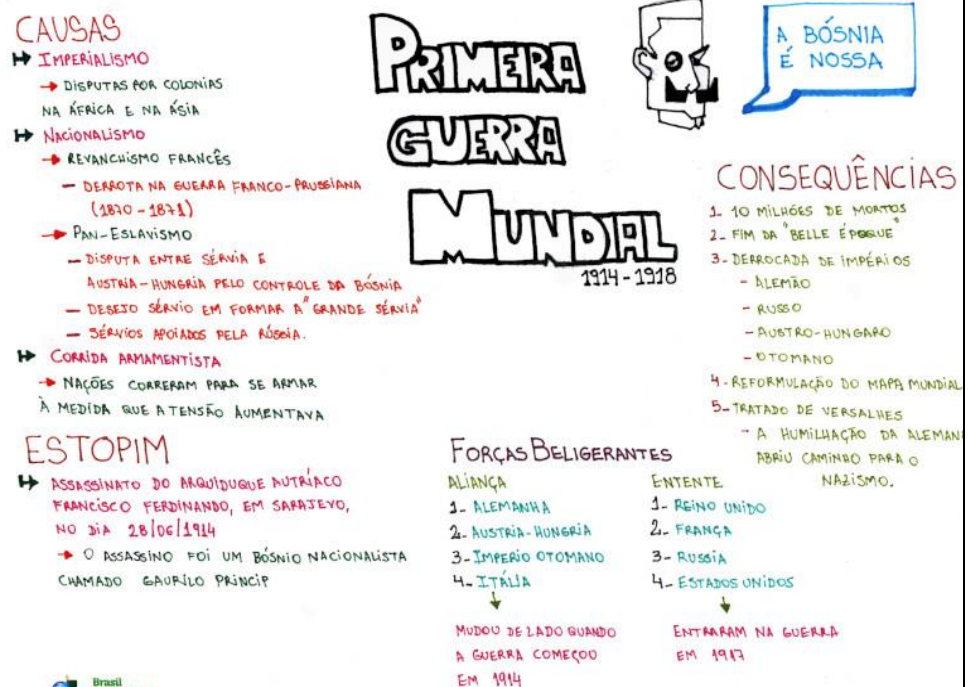 CAUSAS
IMPERIALISMO
DISPUTAS POR COLONIAS
NA ÁFRICA E NA ÁSIA
NACIONALISMO
REVANCHISMO FRANCÊS
- DERROTA NA GUERRA FRANCO-PRUSSIANA
(1870-1871)
PAN-ESLAVISMO
- DISPUTA ENTRE SÉRVIA E
AUSTRIA-HUNGRIA PELO CONTROLE DA BÓSNIA
- DESEJO SÉRVIO EM FORMAR A "GRANDE SÉRVIA"
- SÉRVIOS APOIADOS PELA RÚSSIA.
CORRIDA ARMAMENTISTA
NAÇÕES CORRERAM PARA SE ARMAR
À MEDIDA QUE A TENSÃO AUMENTAVA
ESTOPIM
ASSASSINATO DO ARQUIDUQUE AUTRÍACO
FRANCISCO FERDINANDO, EM SARAJEVO,
NO DIA 28/06/1914
O ASSASSINO FOI UM BÓSNIO NACIONALISTA
CHAMADO GAURILO PRINCIP
PRIMEIRA
GUERRA
MUNDIAL
1914-1918
A BÓSNIA
É NOSSA
CONSEQUÊNCIAS
1- 10 MILHÕES DE MORTOS
2- FIM DA "BELLE ÉPOQUE"
3- DERROCADA DE IMPÉRIOS
- ALEMÃO
- RUSSO
- AUSTRO-HUNGARO
- OTOMANO
4- REFORMULAÇÃO DO MAPA MUNDIAL
5- TRATADO DE VERSALHES
- A HUMILHAÇÃO DA ALEMAN
ABRIU CAMINHO PARA O
NAZISMO.
FORÇAS BELIGERANTES
ALIANÇA
1- ALEMANHA
2- AUSTRIA-HUNGRIA
3- IMPERIO OTOMANO
4- ITÁLIA
MUDOU DE LADO QUANDO
A GUERRA COMEÇOU
EM 1914
ENTENTE
1- REINO UNIDO
2- FRANÇA
3- RUSSIA
4- ESTADOS UNIDOS
ENTRARAM NA GUERRA
EM 1917
Brasil